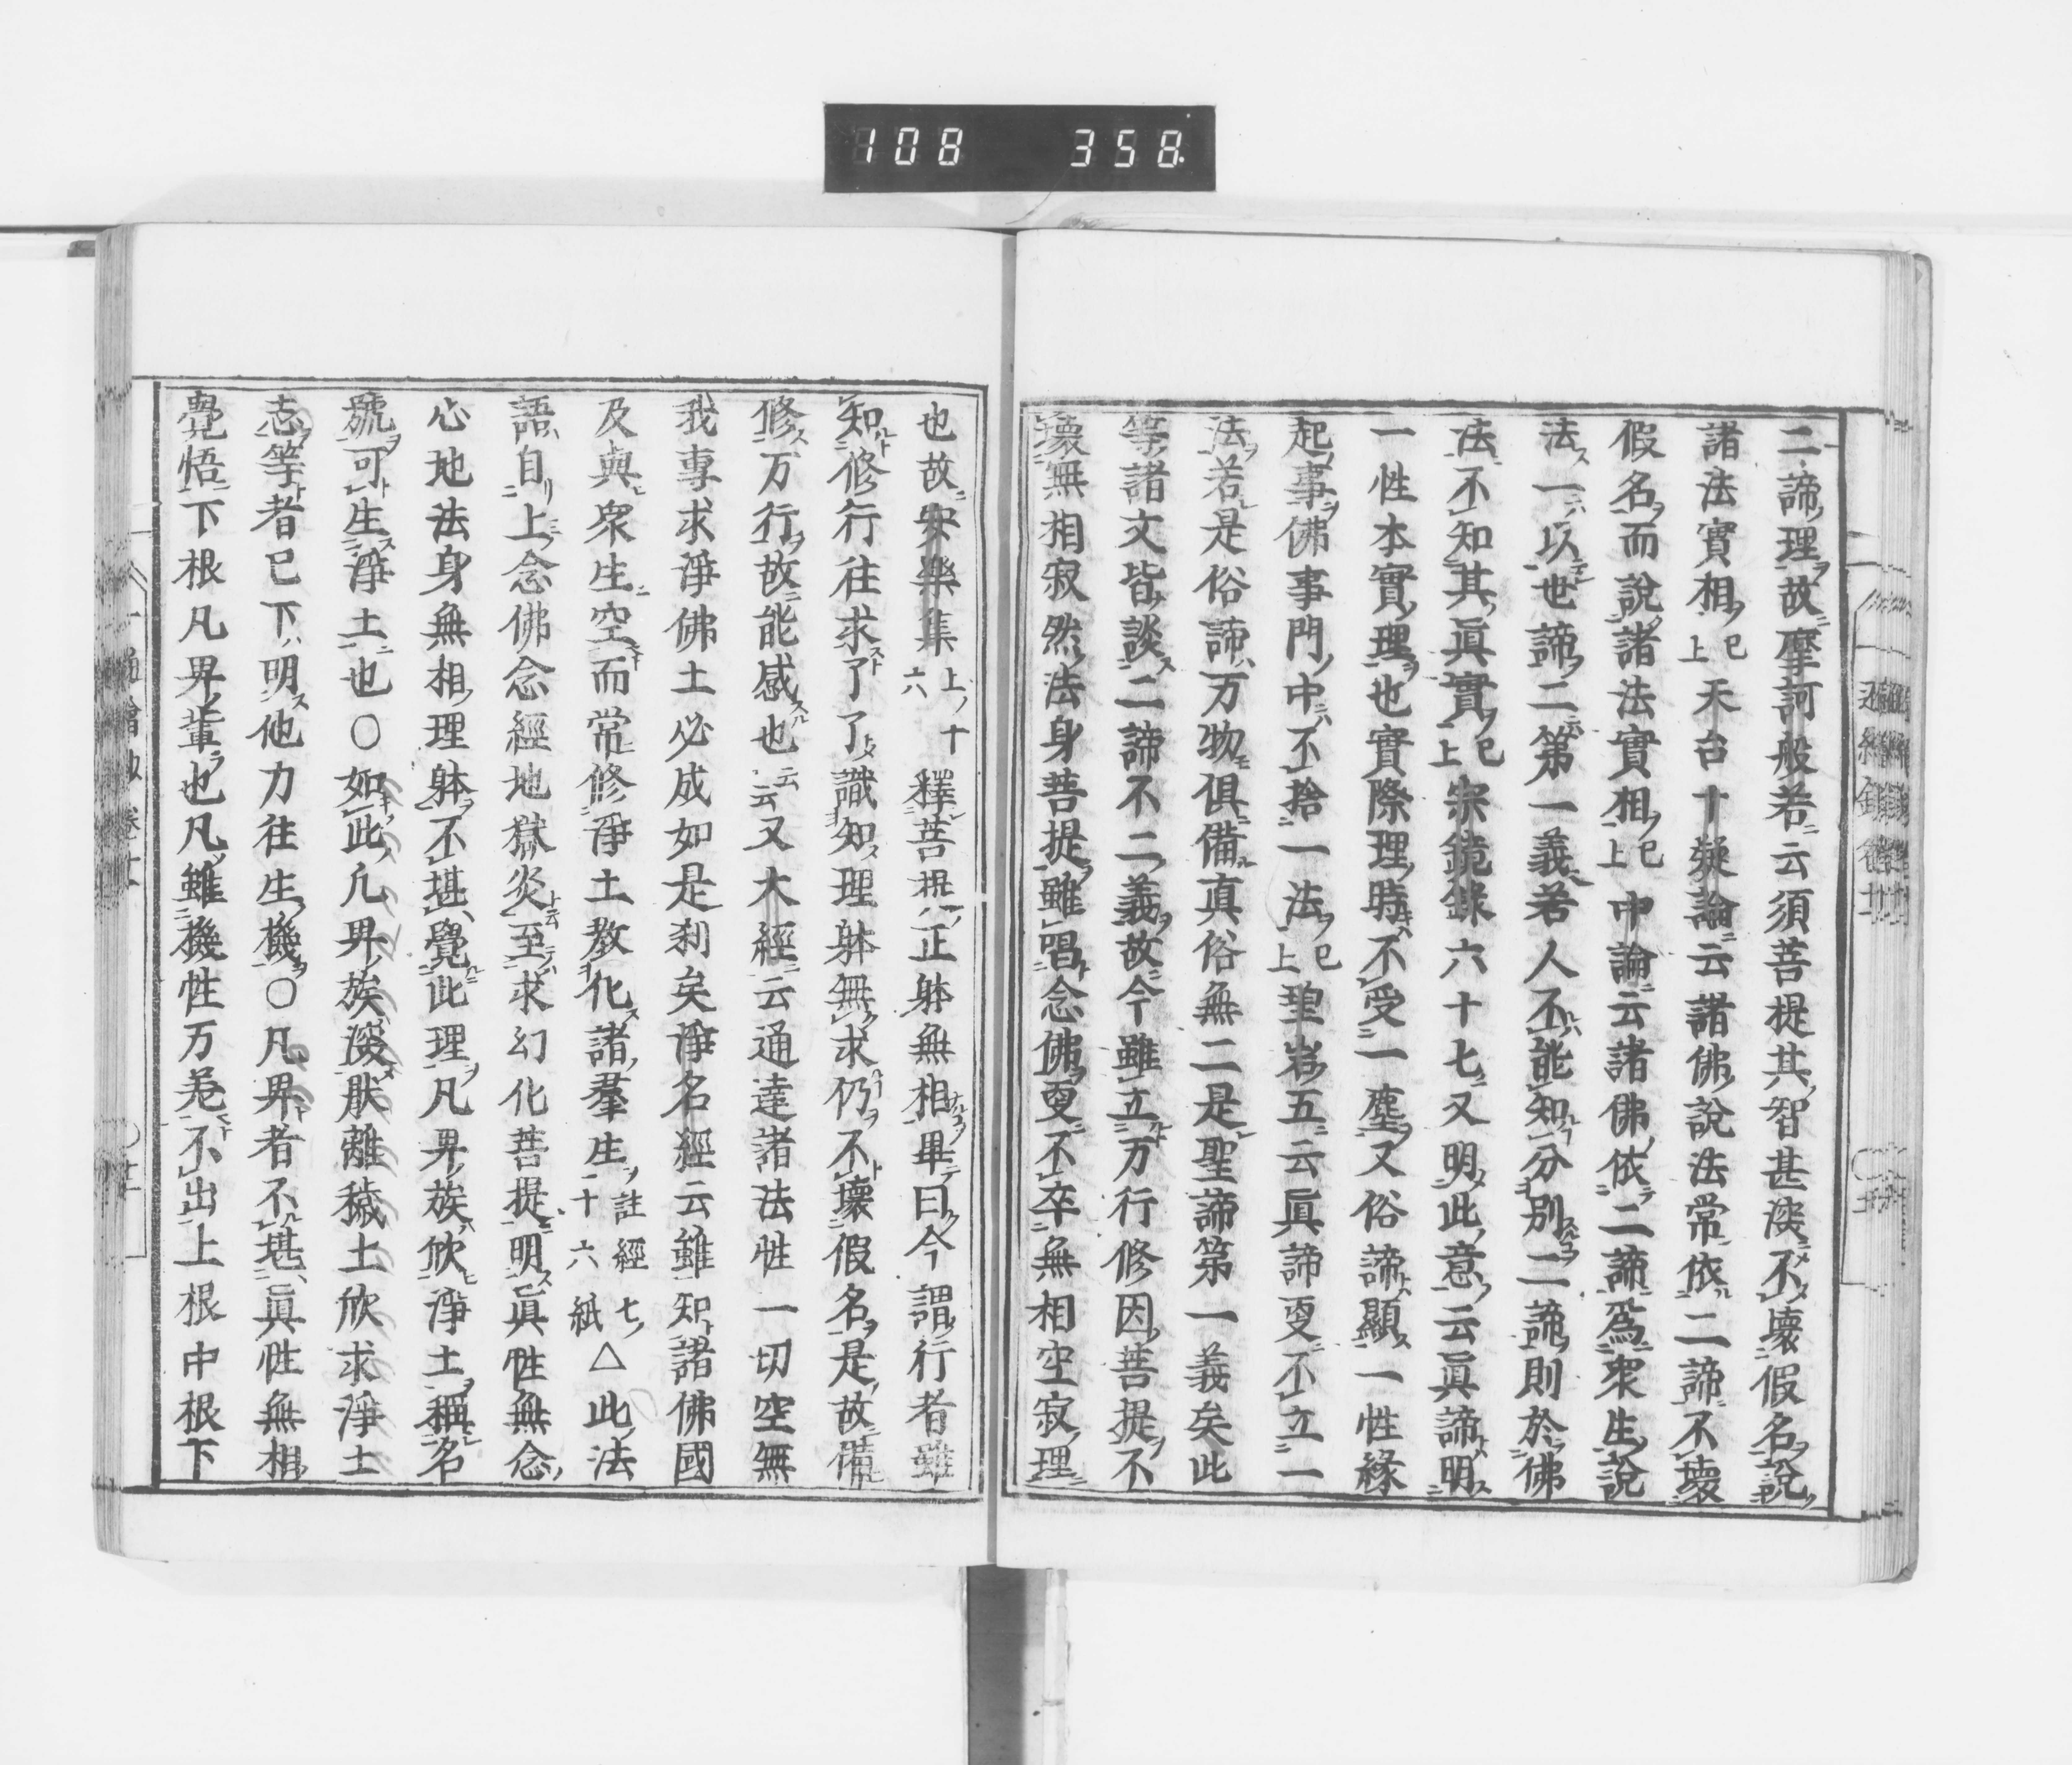 108 358
二諦理故摩訶般若云須菩提其智甚深不壞假名說
諸法實相已上天台十疑論云諸佛說法常依二諦不壞
假名而說諸法實相已上中論云諸佛依二諦爲衆生說
法一以世諦二第一義若人不能知分別二諦則於佛
法不知其眞實已上宗鏡錄六十七又明此意云眞諦明
一性本實理也實際理時不受一塵又俗諦顯一性緣
起事佛事門中不捨一法已上聖岩五云眞諦更不立一
法若是俗諦万物俱備真俗無二是聖諦第一義矣此
等諸文皆談二諦不二義故今雖立万行修因菩提不
壞無相寂然法身菩提雖唱念佛更不卒無相空寂理
也故安樂集上十六釋菩提正躰無相畢曰今謂行者雖
知修行往求了了識知理躰無求仍不壞假名是故備
修万行故能感也云云又大經云通達諸法性一切空無
我專求淨佛土必成如是刹矣淨名經云雖知諸佛國
及與衆生空而常修淨土教化諸羣生註經七十六紙△此法
語自上念佛念經地獄炎至求幻化菩提明眞性無念
心地法身無相理躰不堪覺此理凡界族欣淨土稱名
號可生淨土也○如此凡界族深厭離穢土欣求淨土
志等者已下明他力往生機○凡界者不堪眞性無相
覺悟下根凡界輩也凡雖機性万差不出上根中根下